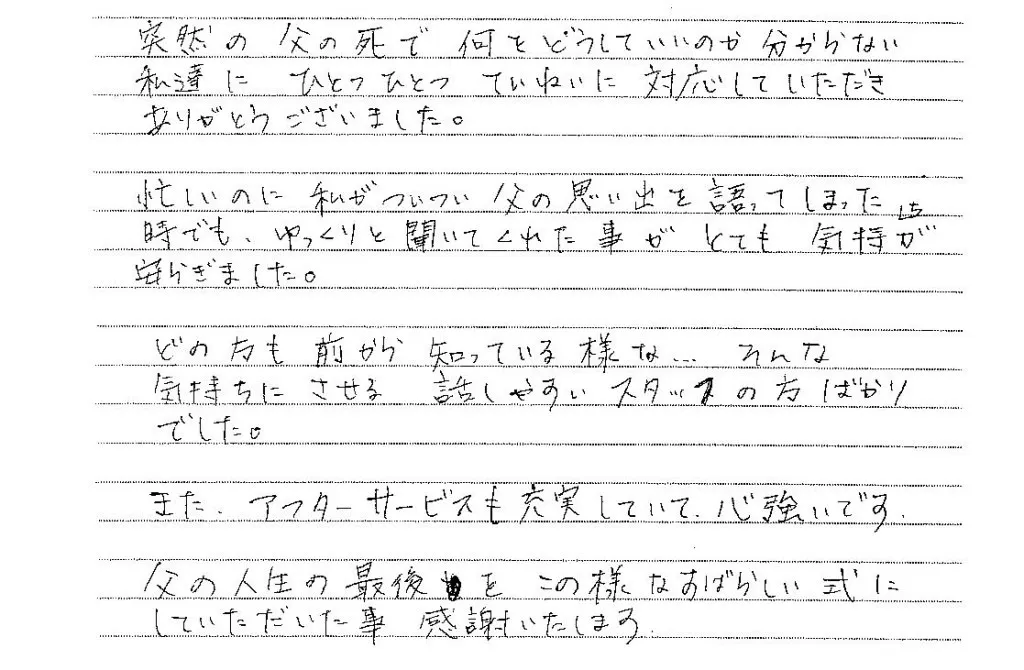 突然の 父の死で 何をどうしていいのか 分からない
私達に ひとつひとつ ていねいに 対応していただき
ありがとうございました。
忙しいのに 私がついつい 父の思い出を 語ってしまった
時でも、ゆっくりと 聞いてくれた 事が とても 気持ちが
安らぎました。
どの方も 前から 知っている 様な… そんな
気持ちに させる 話しやすい スタッフの方 ばかり
でした。
また、アフターサービスも 充実していて、心強いです。
父の人生の 最後を この様なすばらしい 式に
していただいた事 感謝いたします。